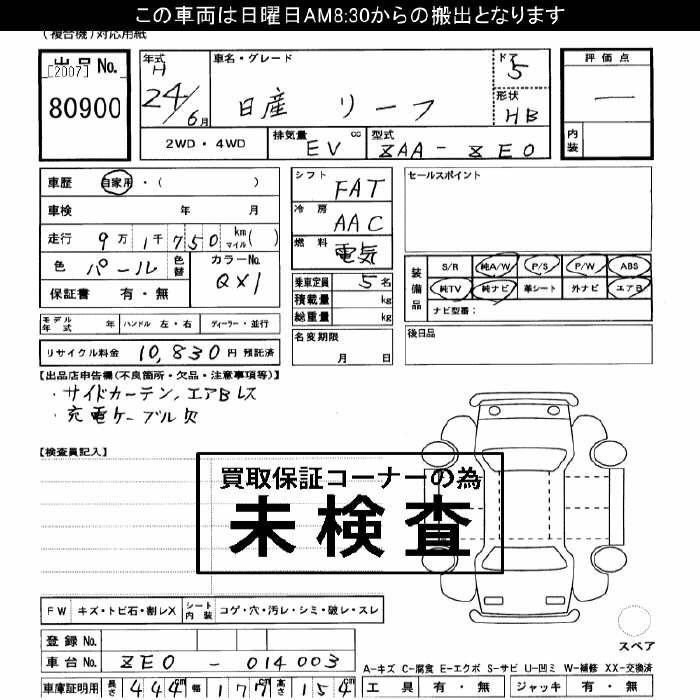 この車両は日曜日AM8:30からの搬出となります
(複合機)対応用紙
出品No.
[2007]
80900
年式
H
24/6月
車名・グレード
日産 リーフ
ドア
5
形状
HB
評価点
―
内装
2WD・4WD
排気量 cc
EV
型式
ZAA-ZE0
車歴 自家用・( )
車検 年 月
走行 9万1千750 km マイル( )
色 パール 色替
カラーNo.
QX1
保証書 有・無
シフト FAT
冷房 AAC
燃料 電気
乗車定員 5名
積載量 kg
総重量 kg
名変期限
月 日
セールスポイント
装備品
S/R 純A/W P/S P/W ABS
純TV 純ナビ 革シート 外ナビ エアB
ナビ型番:
後日品
モデル年式 年 ハンドル 左・右 ディーラー・並行
リサイクル料金 10,830円 預託済
【出品店申告欄(不良箇所・欠品・注意事項等)】
・サイドカーテン,エアBレス
・充電ケーブル欠
【検査員記入】
買取保証コーナーの為
未検査
FW キズ・トビ石・割レX シート内装 コゲ・穴・汚レ・シミ・破レ・スレ
登録No.
車台No. ZE0-014003
スペア
A-キズ C-腐食 E-エクボ S-サビ U-凹ミ W-補修 XX-交換済
車庫証明用 長さ 444cm 幅 177cm 高さ 154cm
工具 有・無 ジャッキ 有・無